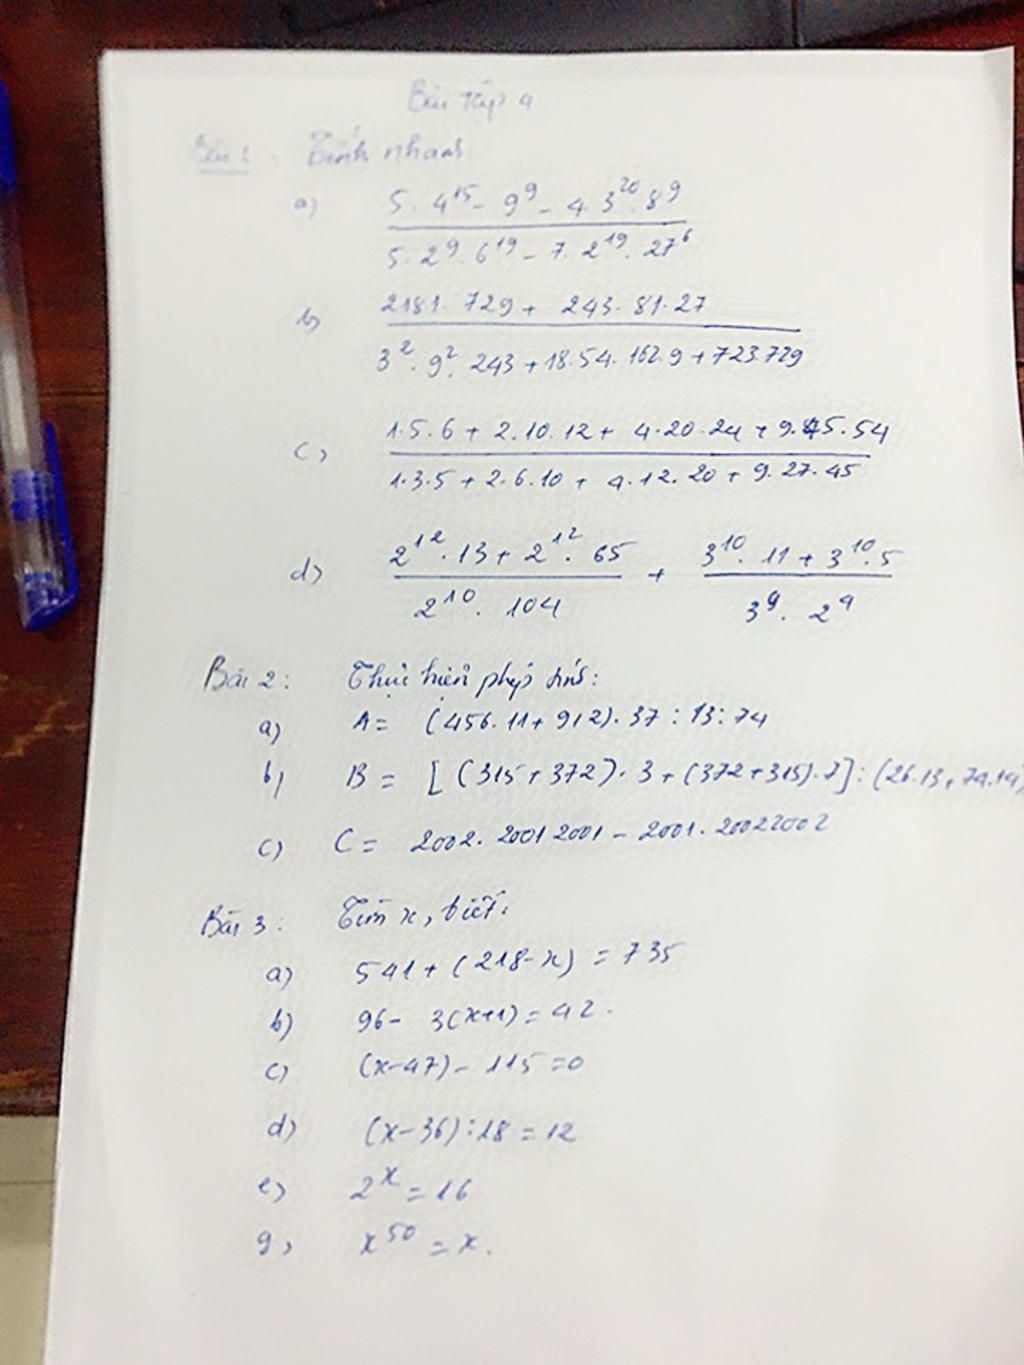 Bài tập 4
Bài 1: Tính nhanh:
a) 5. 4^15 - 9^9 - 4. 3^20. 8^9
5. 2^9. 6^19 - 7. 2^19. 27^6
b) 2181. 729 + 243. 81. 27
3^2. 9^2. 243 + 18. 54. 162. 9 + 723. 729
c) 1. 5. 6 + 2. 10. 12 + 4. 20. 24 + 9. 45. 54
1. 3. 5 + 2. 6. 10 + 4. 12. 20 + 9. 27. 45
d) 2^12. 13 + 2^12. 65 + 3^10. 11 + 3^10. 5
2^10. 104 3^9. 2^4
Bài 2: Thực hiện phép tính:
a) A = (456. 11 + 912). 37 : 13 : 74
b) B = [(315 + 372). 3 + (372 + 315). 7] : (26. 13 + 74. 14)
c) C = 2002. 20012001 - 2001. 20022002
Bài 3: Tìm x, biết:
a) 541 + (218 - x) = 735
b) 96 - 3(x+1) = 42.
c) (x - 47) - 115 = 0
d) (x - 36) : 18 = 12
e) 2^x = 16
g) x^50 = x.